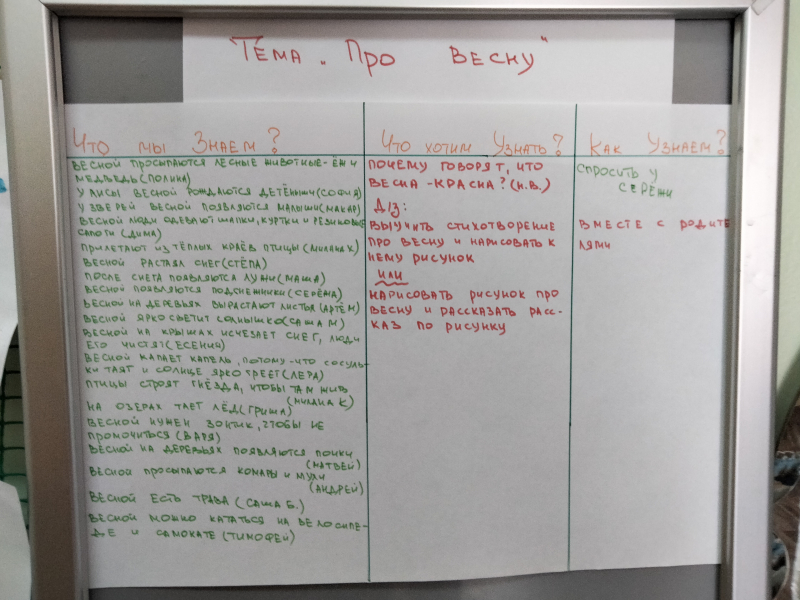 Тема „Про весну"
Что мы знаем?
Весной просыпаются лесные животные - ёж и
медведь (Полина)
У лисы весной рождаются детёныши (София)
У зверей весной появляются малыши (Макар)
Весной люди одевают шапки, куртки и резиновые
сапоги (Дима)
Прилетают из тёплых краёв птицы (Милана К)
Весной растаял снег (Стёпа)
После снега появляются лужи (Маша)
Весной появляются подснежники (Серёжа)
Весной на деревьях вырастают листья (Артём)
Весной ярко светит солнышко (Саша М)
Весной на крышах исчезает снег, люди
его чистят (Есения)
Весной капает капель, потому-что сосуль-
ки таят и солнце ярко греет (Лера)
Птицы строят гнёзда, чтобы там жить
(Милана К)
На озёрах тает лёд (Гриша)
Весной нужен зонтик, чтобы не
промочиться (Варя)
Весной на деревьях появляются почки
(Матвей)
Весной просыпаются комары и мухи
(Андрей)
Весной есть трава (Саша Б.)
Весной можно кататься на велосипе-
де и самокате (Тимофей)
Что хотим узнать?
Почему говорят, что
весна - красна? (Н.В.)
Д/з:
Выучить стихотворение
про весну и нарисовать к
нему рисунок
или
нарисовать рисунок про
весну и рассказать рас-
сказ по рисунку
Как узнаем?
Спросить у
Серёжи
Вместе с родите
лями